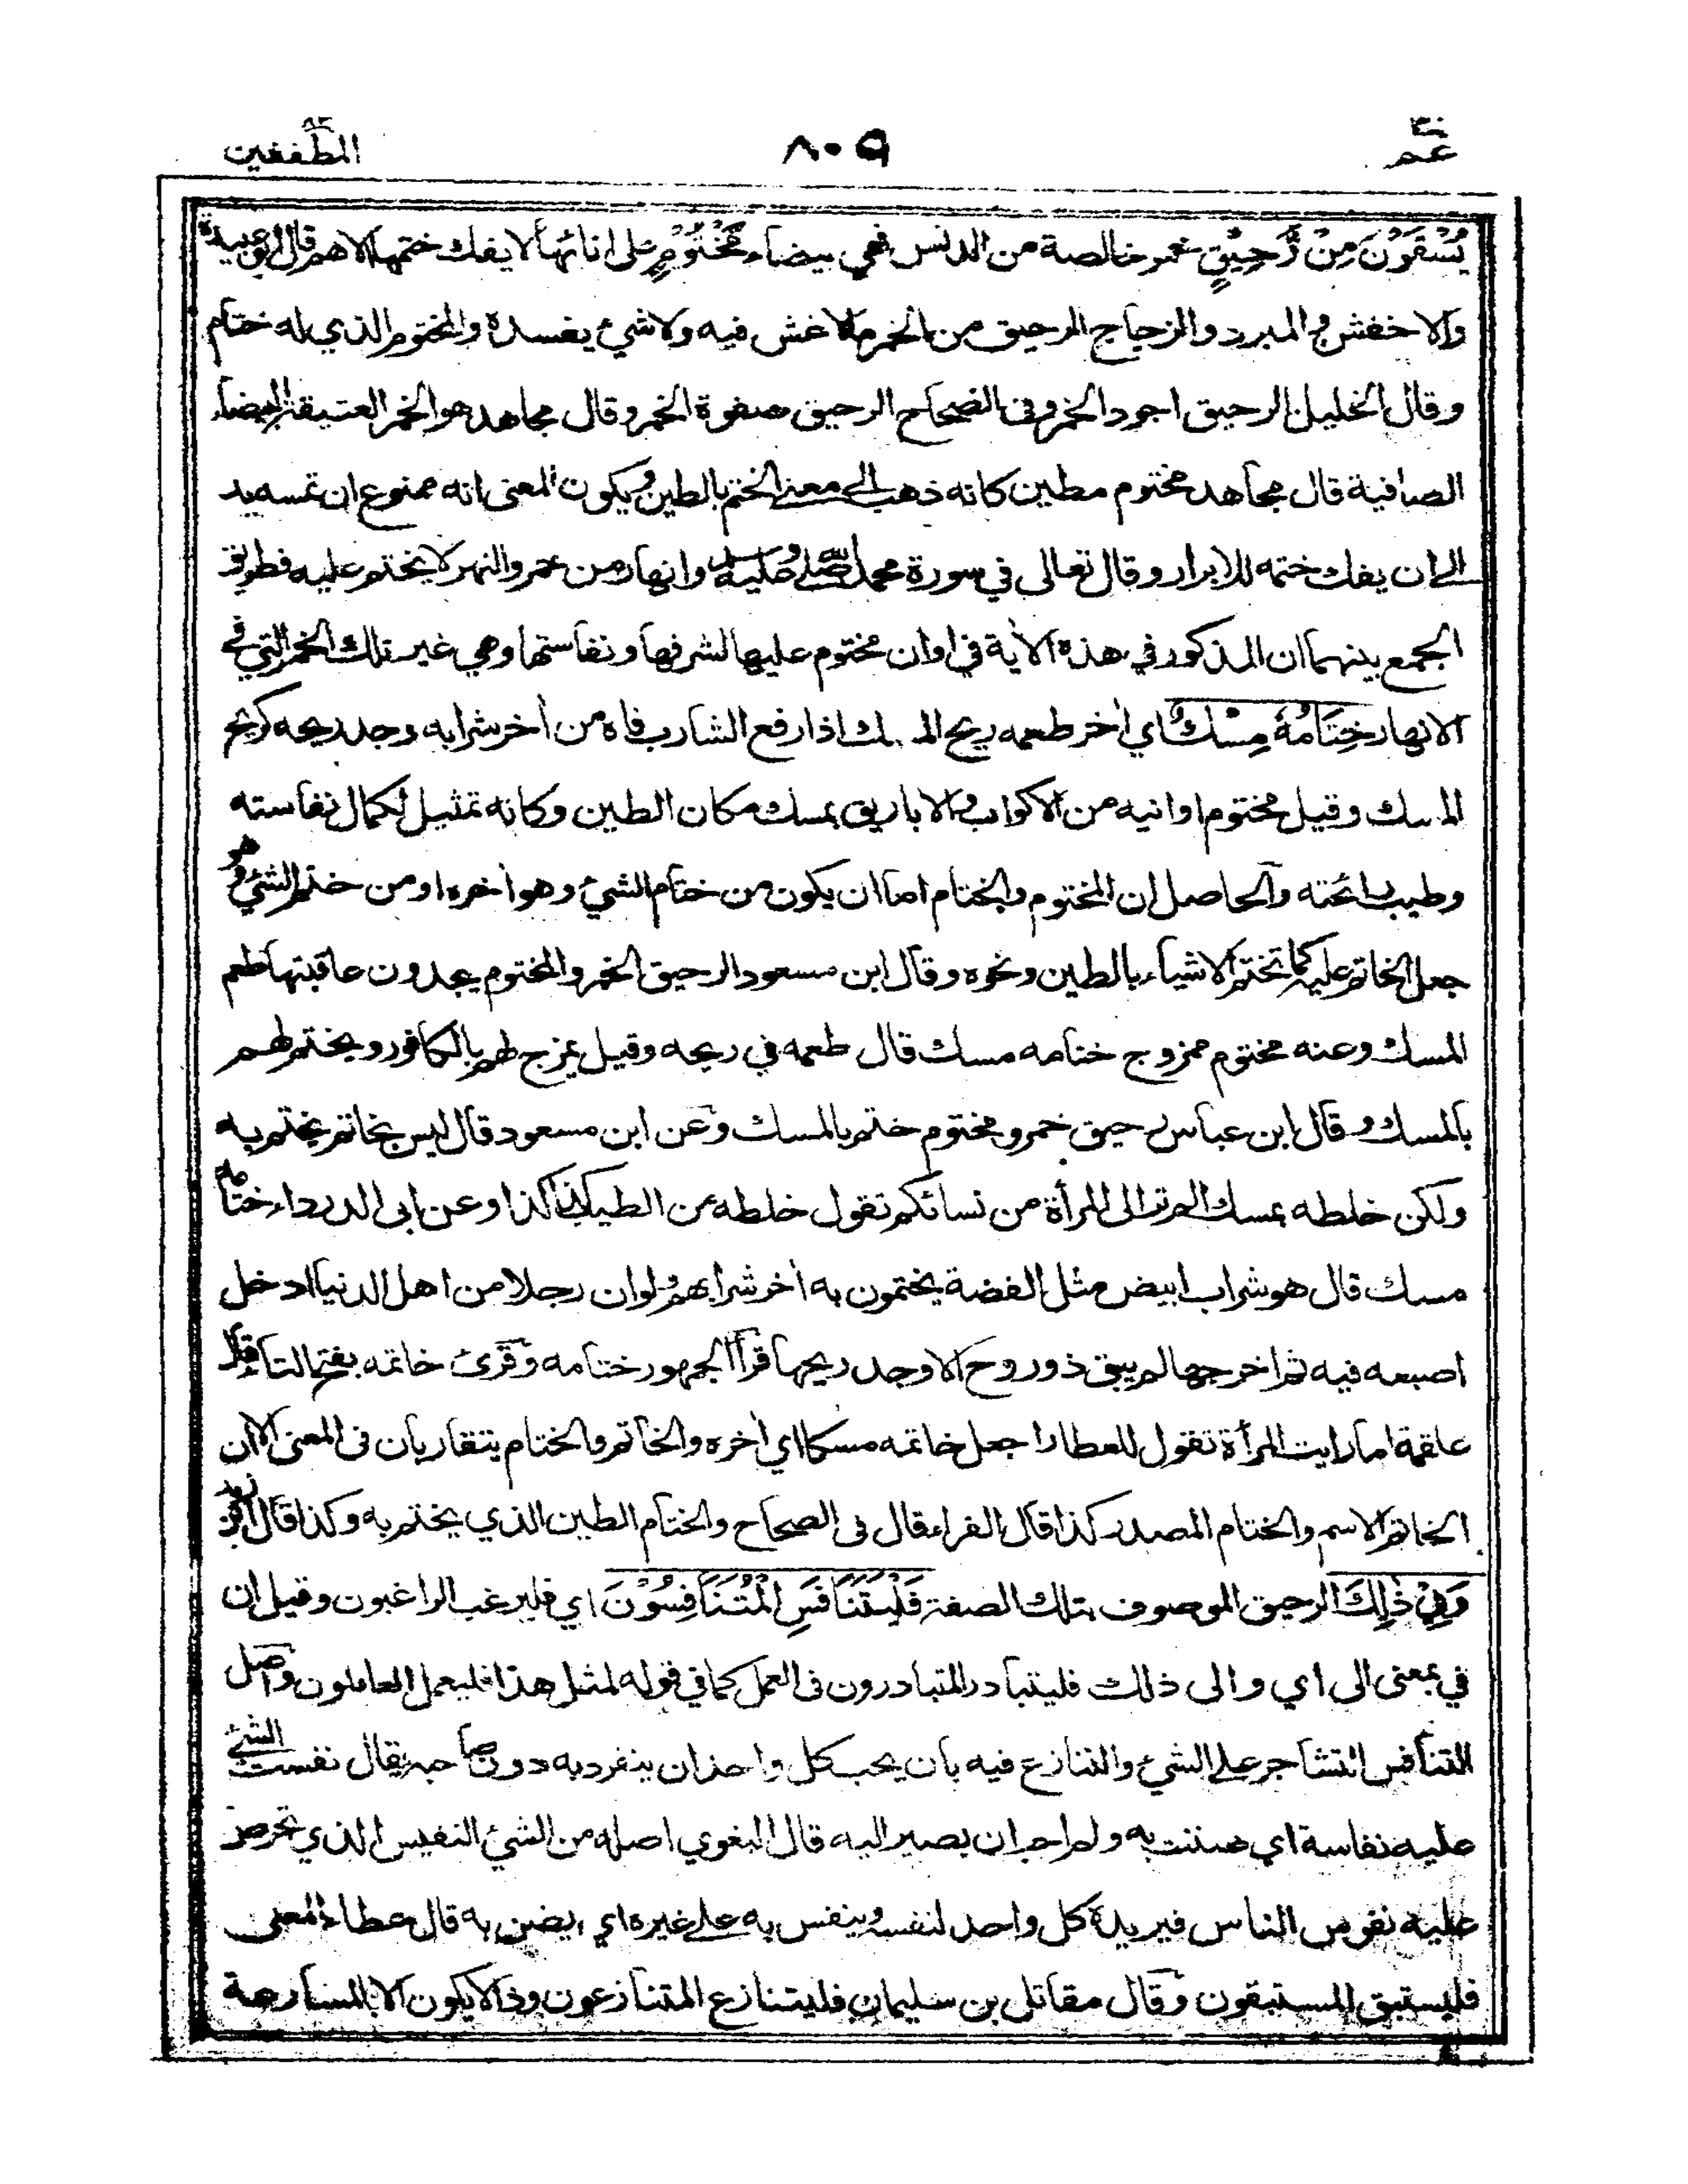 عم ٣٠
٨٠٩
المطففين ٨٣
يُسْقَوْنَ مِنْ رَّحِيْقٍ خمر خالصة من الدنس فهي بيضاء مَّخْتُوْمٍ على انائها لا يفك ختمها الا هم قال ابو عبيدة
والاخفش والمبرد والزجاج الرحيق من الخمر ما لا غش فيه ولا شيئ يفسده والمختوم الذي له ختام
وقال الخليل الرحيق اجود الخمر وفى الصحاح الرحيق صفوة الخمر وقال مجاهد هو الخمر العتيقة البيضاء
الصافية قال مجاهد مختوم مطين كانه ذهب الى معنى الختم بالطين ويكون المعنى انه ممنوع ان تمسه يد
الى ان يفك ختمه للابرار وقال تعالى في سورة محمد صلى الله عليه وسلم وانهار من خمر والنهر لا يختم عليه فطريق
الجمع بينهما ان المذكور في هذه الأية في اوان مختوم عليها لشرفها ونفاستها وهي غير تلك الخمر التي في
الانهار خِتَامُهٗ مِسْكٌ اي أخر طعمه ريح المسك اذا رفع الشارب فاه من أخر شرابه وجد ريحه كريح
المسك وقيل مختوم اوانيه من الاكواب والاباريق بمسك مكان الطين وكانه تمثيل لكمال نفاسته
وطيب رائحته والحاصل ان المختوم والختام اما ان يكون من ختام الشيئ وهو أخره او من ختم الشيئ وهو
جعل الخاتم عليه كما تختم الاشياء بالطين ونحوه وقال ابن مسعود الرحيق الخمر والمختوم يجدون عاقبتها طعم
المسك وعنه مختوم ممزوج ختامه مسك قال طعمه في ريحه وقيل يمزج لهم بالكافور ويختم لهم
بالمسك وقال ابن عباس رحيق خمر ومختوم ختم بالمسك وعن ابن مسعود قال ليس بخاتم يختم به
ولكن خلطه بمسك الم تر الى المرأة من نسائكم تقول خلطه من الطيب كذا وكذا وعن ابى الدرداء ختامه
مسك قال هو شراب ابيض مثل الفضة يختمون به أخر شرابهم ولو ان رجلا من اهل الدنيا ادخل
اصبعه فيه ثم اخرجها لم يبق ذو روح الا وجد ريحها قرأ الجمهور ختامه وقرئ خاتمه بفتح التاء قال
علقمة اما رايت المرأة تقول للعطار اجعل خاتمه مسكا اي أخره والخاتم والختام يتقاربان فى المعنى الا ان
الخاتم الاسم والختام المصدر كذا قال الفراء قال فى الصحاح والختام الطين الذي يختم به وكذا قال ابن زيد
وَفِيْ ذٰلِكَ الرحيق الموصوف بتلك الصفة فَلْيَتَنَافَسِ الْمُتَنَافِسُوْنَ اي فليرغب الراغبون وقيل ان
في بمعنى الى اي والى ذلك فليتبادر المتبادرون فى العمل كما في قوله لمثل هذا فليعمل العاملون واصل
التنافس التشاجر على الشيئ والتنازع فيه بان يحب كل واحد ان ينفرد به دون صاحبه يقال نفست الشيئ
عليه نفاسة اي ضننت به ولم احب ان يصير اليه قال البغوي اصله من الشيئ النفيس الذي تحرص
عليه نفوس الناس فيريده كل واحد لنفسه وينفس به على غيره اي يضن به قال عطاء المعنى
فليستبق المستبقون وقال مقاتل بن سليمان فليتنازع المتنازعون وذا لا يكون الا بالمسارعة